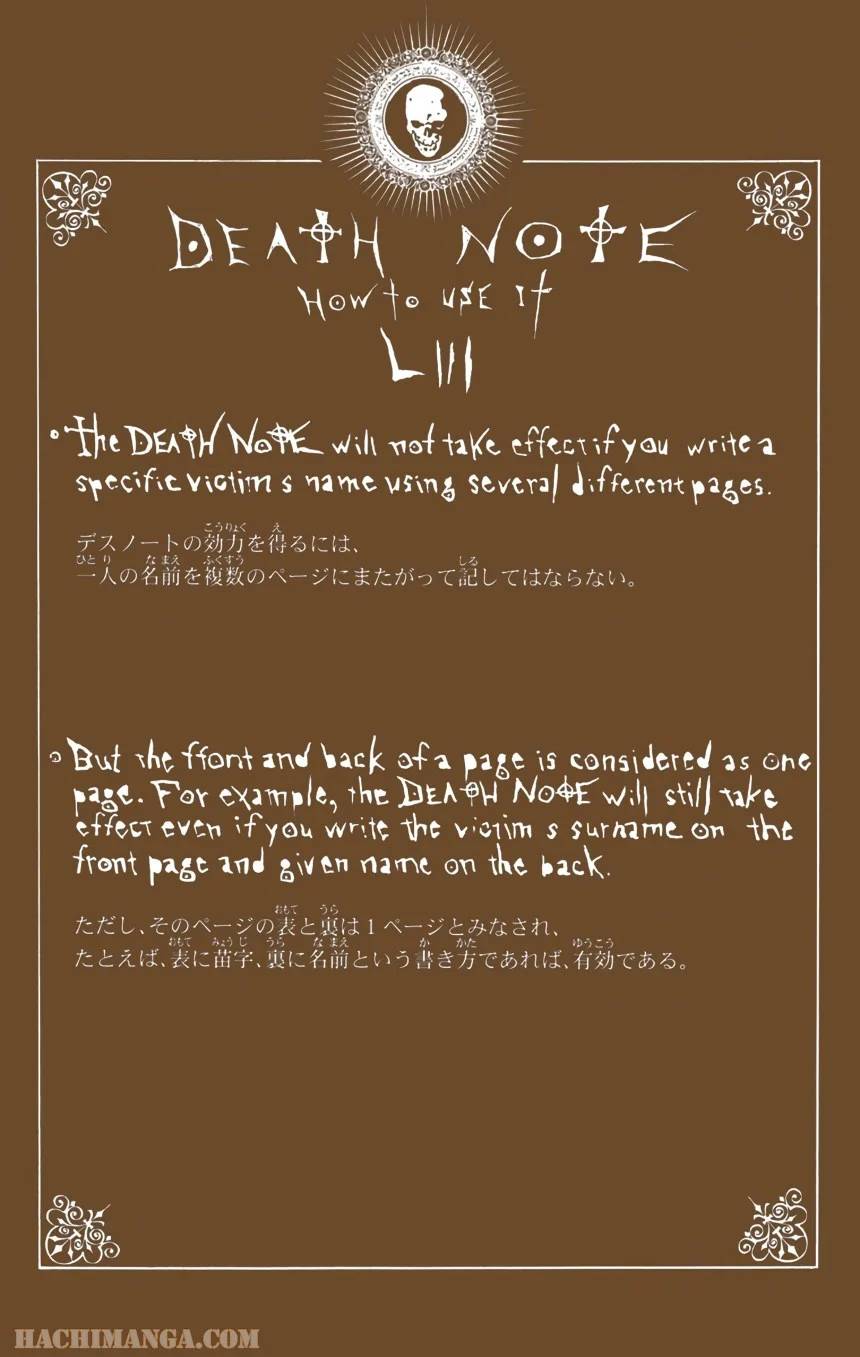 DEATH NOTE
HOW to USE It
LIII
• the DEATH NOTE will not take effect if you write a
specific victim s name using several different pages.
デスノートの効力を得るには、
一人の名前を複数のページにまたがって記してはならない。
• But the ffont and back of a page is considered as one
page. For example, the DEATH NOTE will still take
effect even if you write the victim s surname on the
front page and given name on the back.
ただし、そのページの表と裏は1ページとみなされ、
たとえば、表に苗字、裏に名前という書き方であれば、有効である。
HACHIMANGA.COM